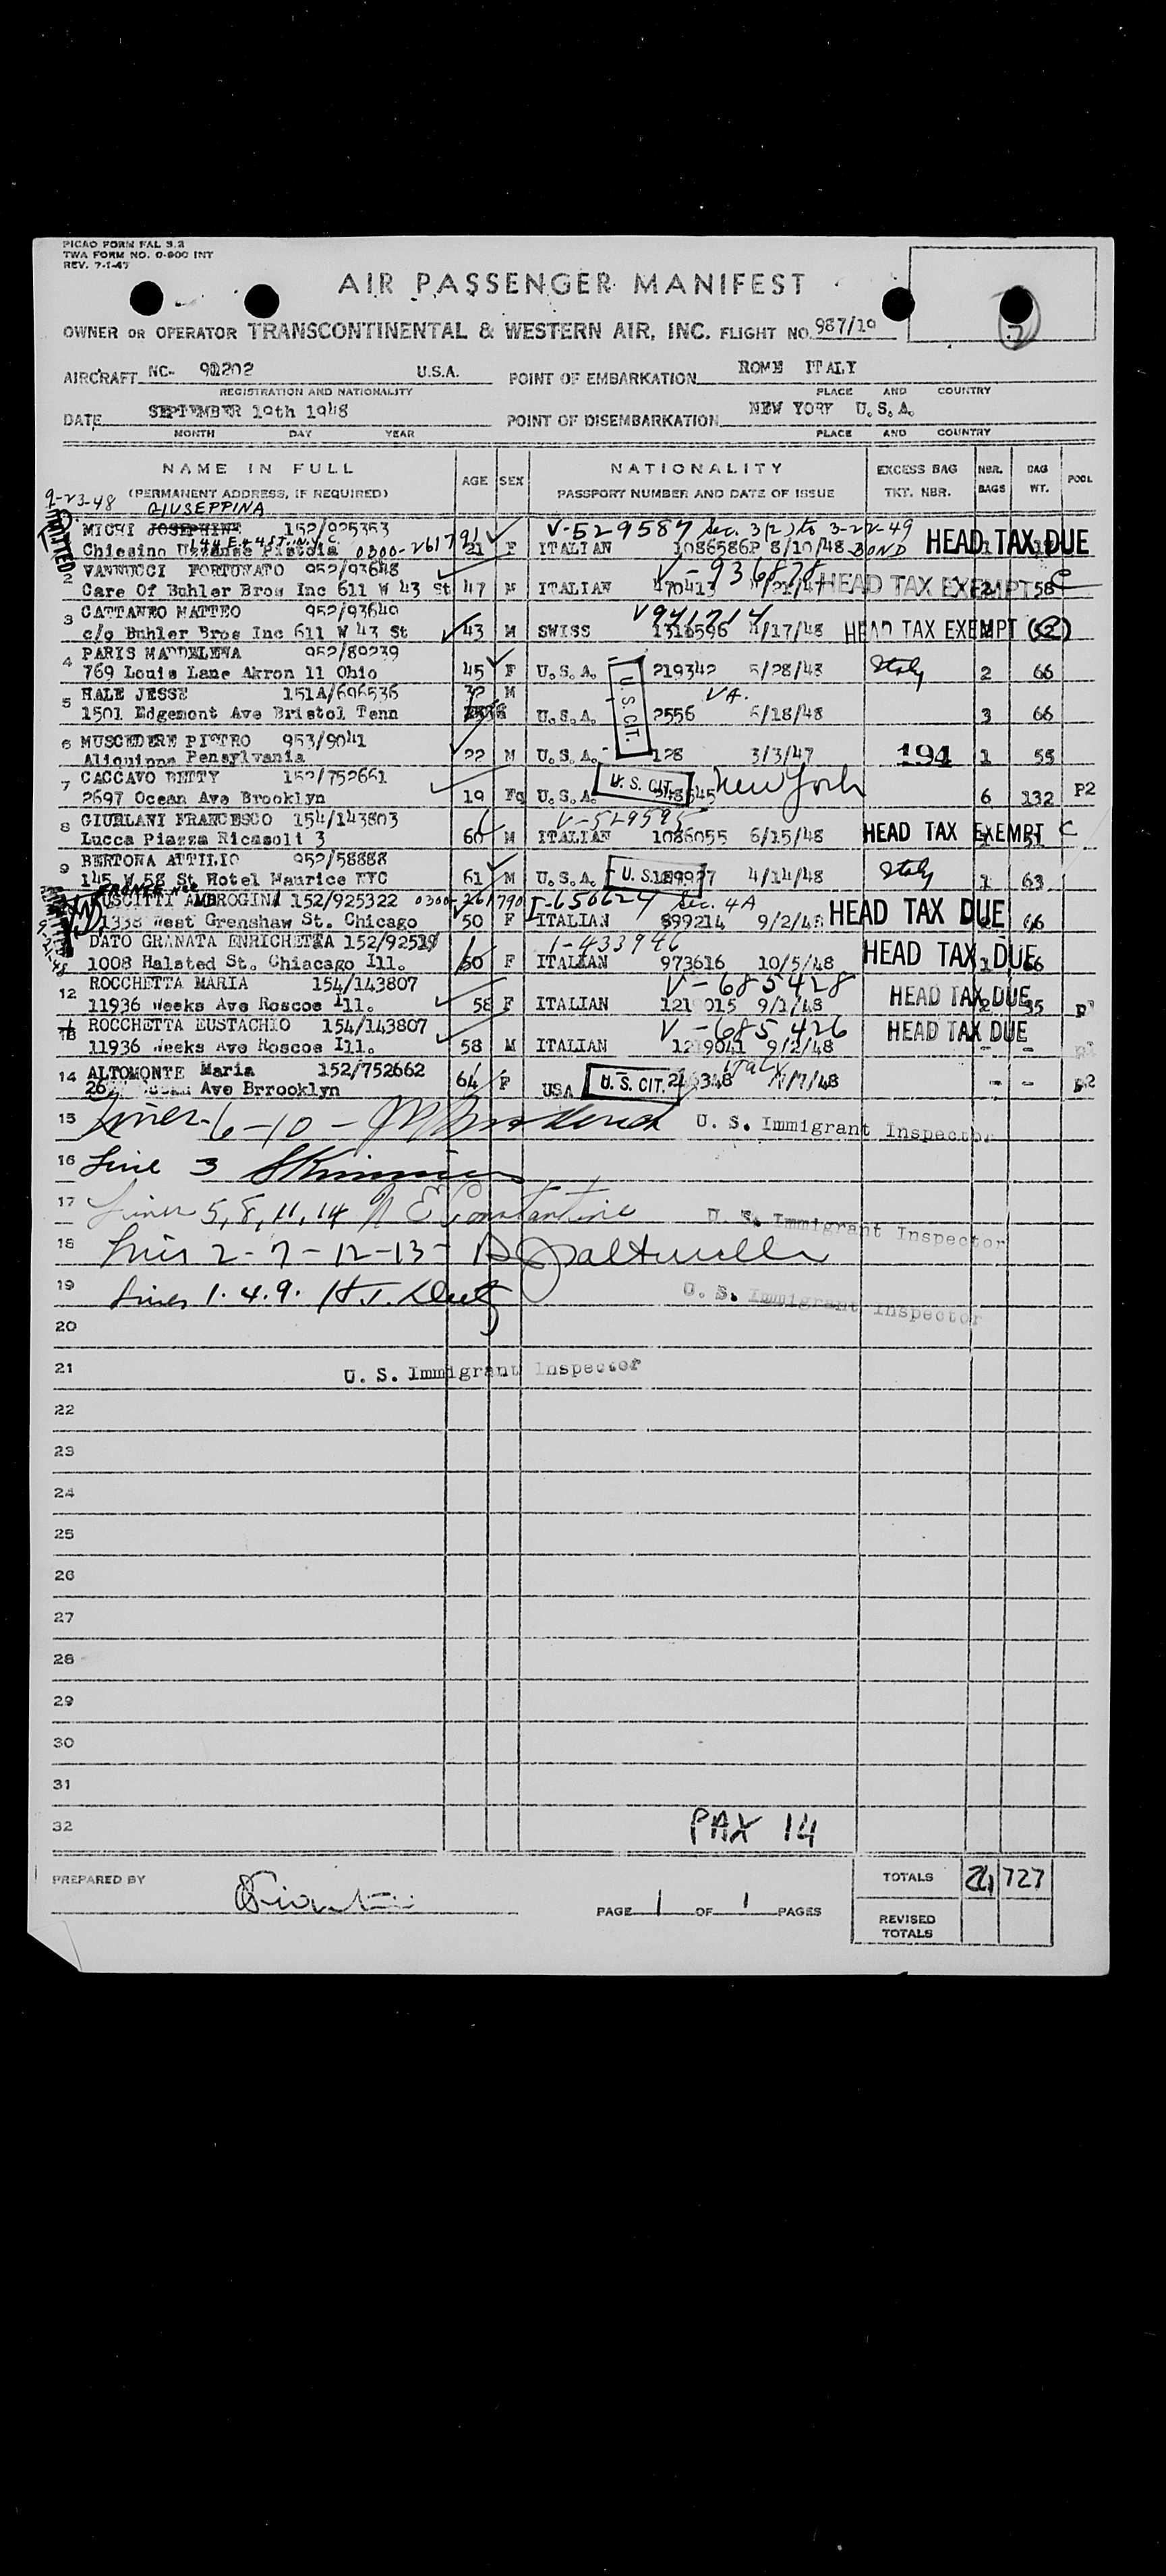 PICAO FORM FAL 3.2
TWA FORM NO. O-800 INT
REV. 7-1-47
AIR PASSENGER MANIFEST
OWNER OR OPERATOR TRANSCONTINENTAL & WESTERN AIR, INC. FLIGHT NO. 987/19
AIRCRAFT NC- 90202 U.S.A. POINT OF EMBARKATION ROME ITALY
REGISTRATION AND NATIONALITY PLACE AND COUNTRY
DATE SEPTEMBER 19th 1948 POINT OF DISEMBARKATION NEW YORK U.S.A.
MONTH DAY YEAR PLACE AND COUNTRY
NAME IN FULL AGE SEX NATIONALITY EXCESS BAG NBR. BAG POOL
(PERMANENT ADDRESS, IF REQUIRED) PASSPORT NUMBER AND DATE OF ISSUE TKT. NBR. BAGS WT.
9-23-48 GIUSEPPINA
ADMITTED MICHI JOSEPHINE 152/925353 V-529587 Sec. 3(2) to 3-22-49
144 E. 4 ST. N.Y.C.
Chiesino Pistoia 0300-261791 21 F ITALIAN 1086586P 8/10/48 BOND HEAD TAX DUE
2 VANNUCCI FORTUNATO 952/93648 V-936878
Care Of Buhler Bros Inc 611 W 43 St 47 M ITALIAN 470413 HEAD TAX EXEMPT 2 58 C
3 CATTANEO MATTEO 952/93640 V941714
c/o Buhler Bros Inc 611 W 43 St 43 M SWISS 1316596 4/17/48 HEAD TAX EXEMPT (C)
4 PARIS MADDELENA 952/89239
769 Louis Lane Akron 11 Ohio 45 F U.S.A. 219342 5/28/43 Italy 2 66
5 HALE JESSE 151A/696536 32 M VA.
1501 Edgemont Ave Bristol Tenn U.S.A. U.S. CIT. 2556 6/18/48 3 66
6 MUSCEDERE PIETRO 953/9041
Aliquippa Pensylvania 22 M U.S.A. 128 3/3/47 194 1 55
7 CACCAVO BETTY 152/752661 U. S. CIT. New York
2697 Ocean Ave Brooklyn 19 U.S.A. 6 132 P2
8 GIURLANI FRANCESCO 154/143803 V-529595
Lucca Piazza Ricasoli 3 60 M ITALIAN 1086055 6/15/48 HEAD TAX EXEMPT 51 C
9 BERTONA ATTILIO 952/58888
145 W 58 St Hotel Maurice NYC 61 M U.S.A. U. S. 4/14/48 Italy 1 63
MUSCITTI AMBROGINA 152/925322 0300-261790 I-650624 Sec. 4A
1338 West Grenshaw St. Chicago 50 F ITALIAN 899214 9/2/48 HEAD TAX DUE 66
DATO GRANATA ENRICHETTA 152/92519 I-433946
1008 Halsted St. Chiacago Ill. 50 F ITALIAN 973616 10/5/48 HEAD TAX DUE 1 66
12 ROCCHETTA MARIA 154/143807 V-685428
11936 Weeks Ave Roscoe Ill. 58 F ITALIAN 121 015 9/1/48 HEAD TAX DUE 2 35
13 ROCCHETTA EUSTACHIO 154/143807 V-685426
11936 Weeks Ave Roscoe Ill. 58 M ITALIAN 1219041 9/2/48 HEAD TAX DUE - -
14 ALTOMONTE Maria 152/752662 Italy
26 Ave Brrooklyn 64 F USA U. S. CIT. - - P2
15 Lines-6-10- U. S. Immigrant Inspector
16 Line 3
17 Lines 5, 8, 11, 14 N E Constantine U. S. Immigrant Inspector
18 Lines 2-7-12-13-
19 Lines 1. 4. 9. U. S. Immigrant Inspector
20
21 U. S. Immigrant Inspector
22
23
24
25
26
27
28
29
30
31
32 PAX 14
PREPARED BY TOTALS 24 727
PAGE 1 OF 1 PAGES
REVISED TOTALS